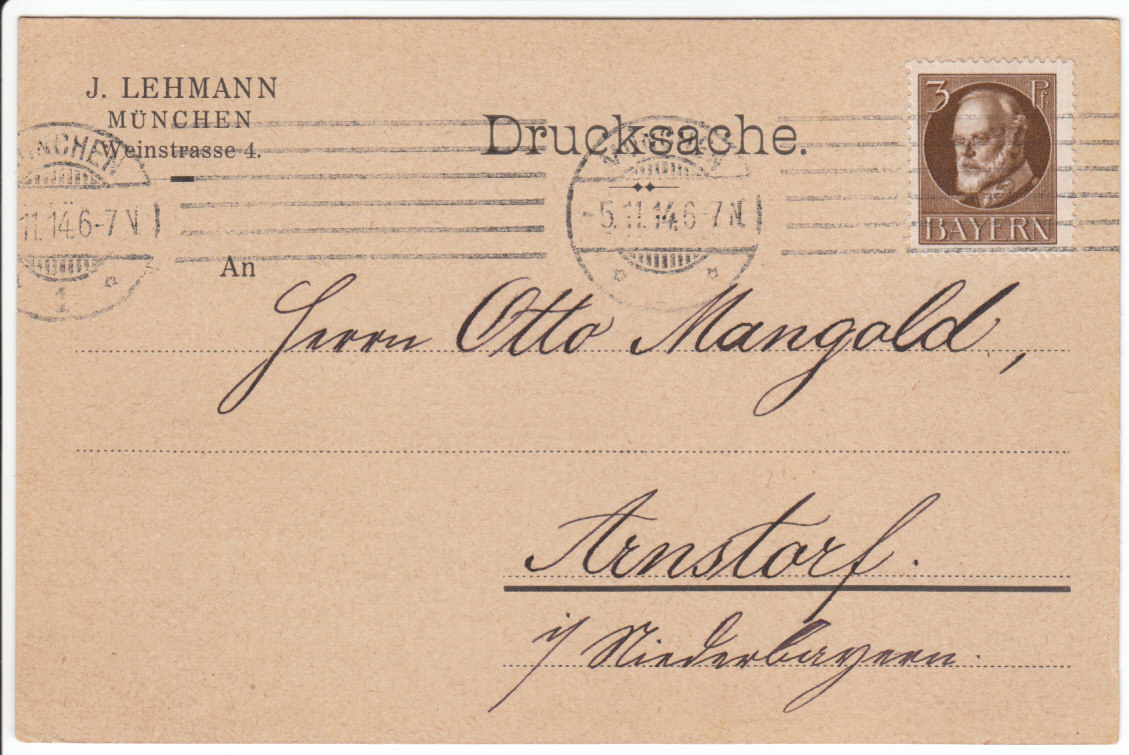 J. LEHMANN
MÜNCHEN
Weinstrasse 4.
Drucksache.
3 Pf
BAYERN
MÜNCHEN
11.14.6-7 N.
1.
MÜNCHEN
-5.11.14.6-7 N.
An
Herrn Otto Mangold,
Arnstorf.
i/ Niederbayern.